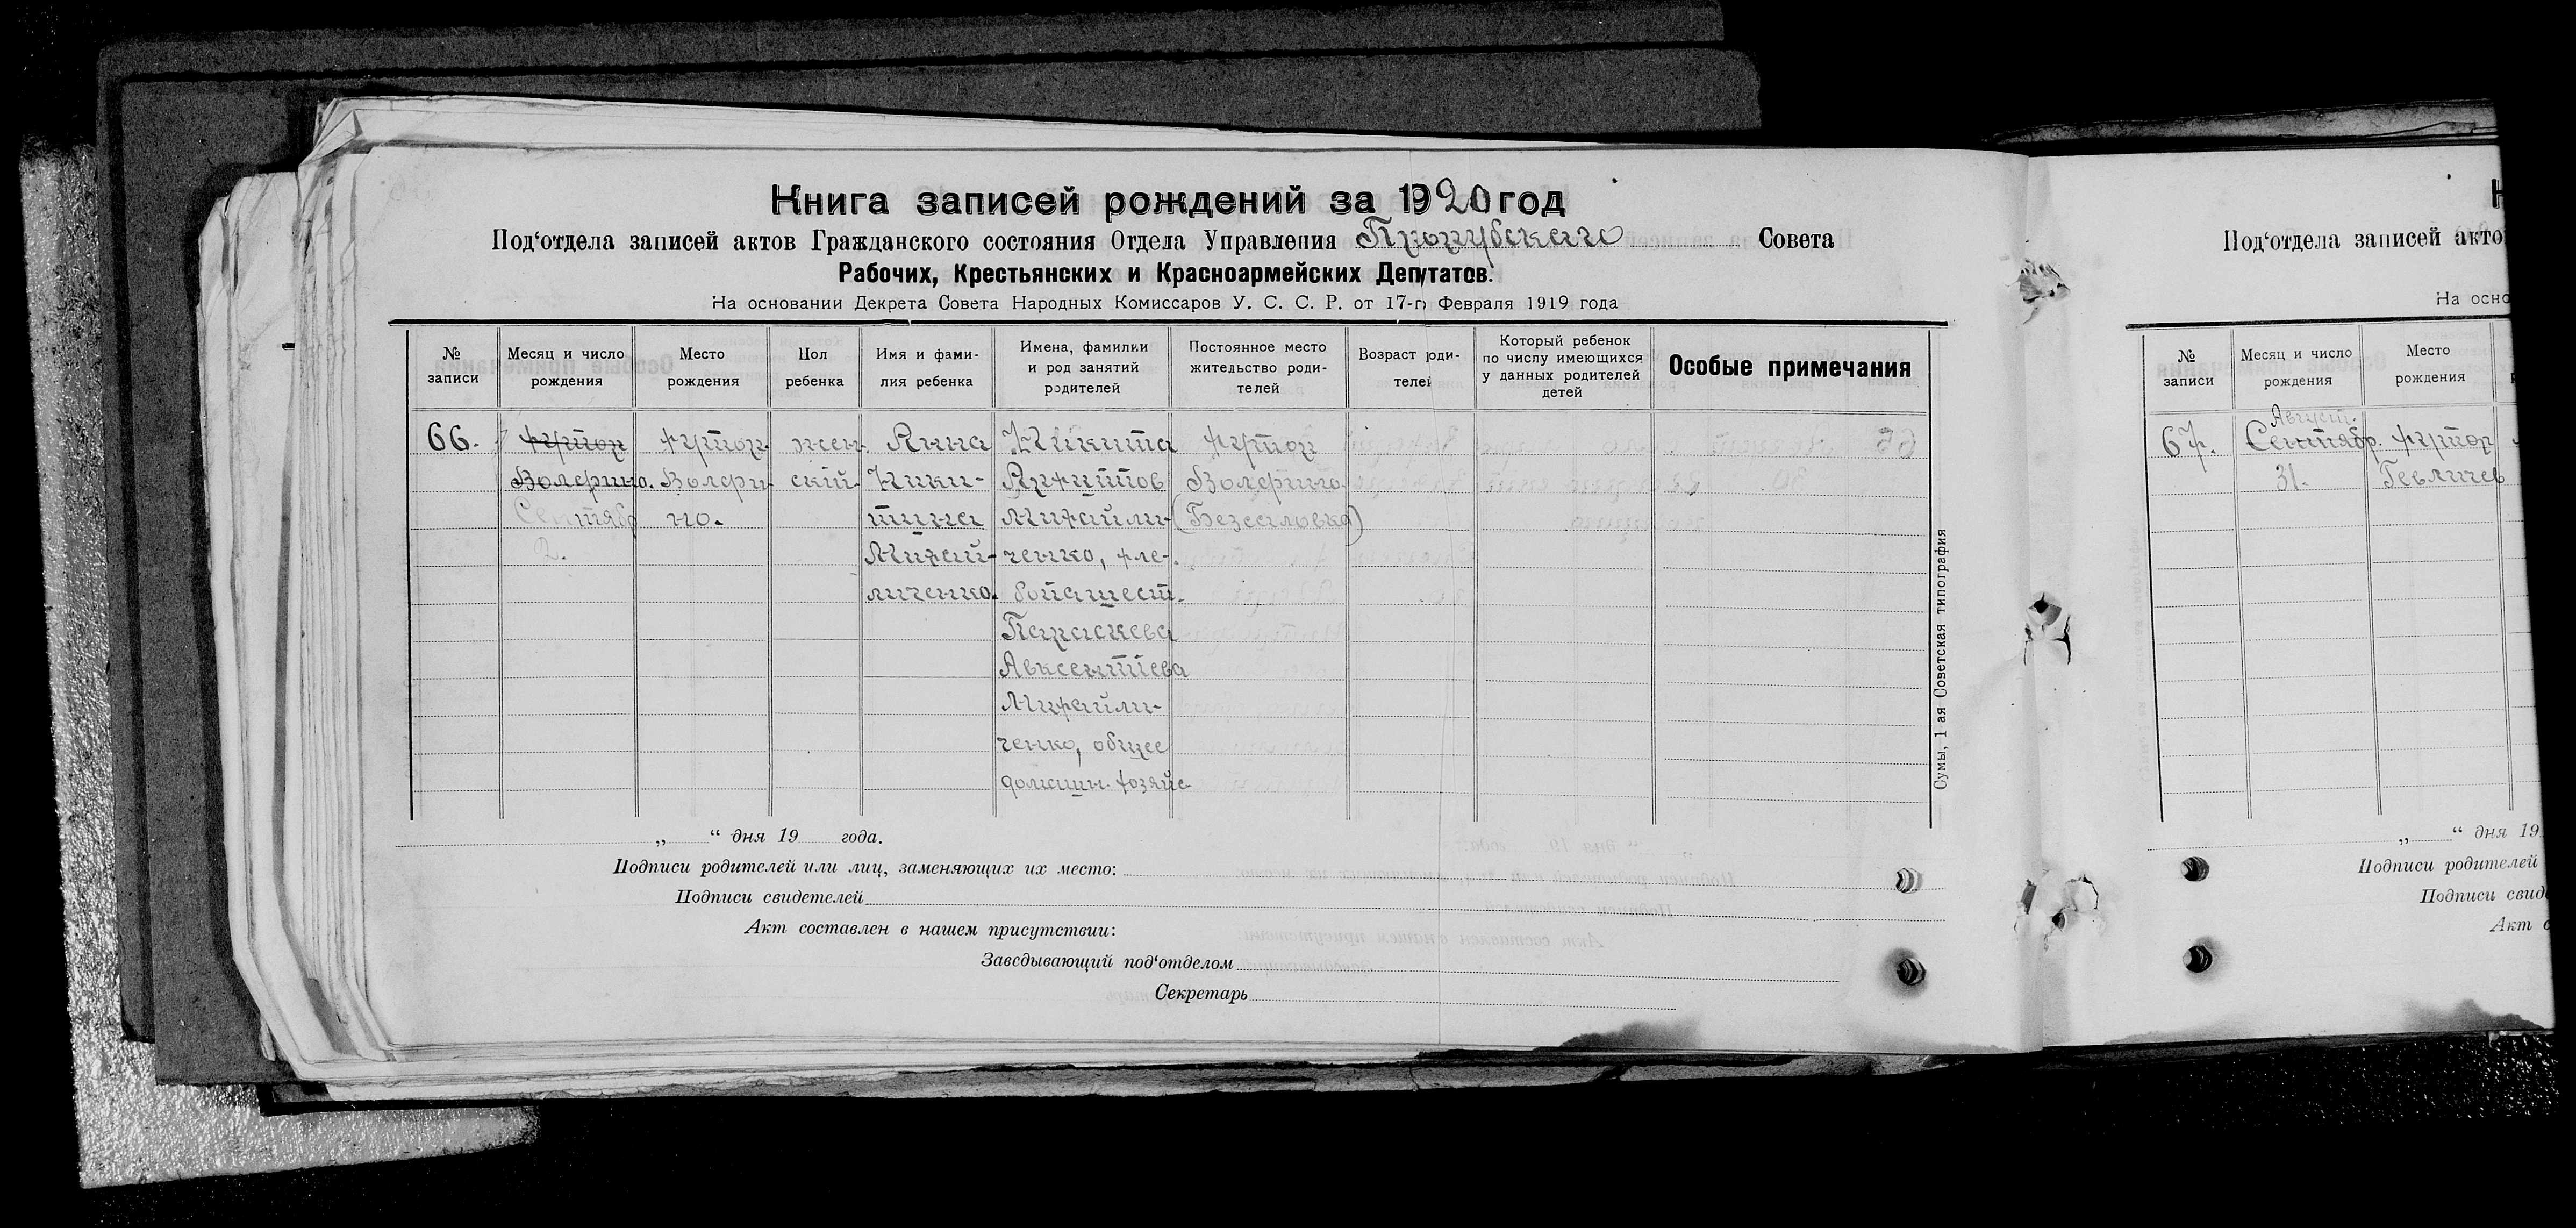 Книга записей рождений за 1920 год
Под‘отдела записей актов Гражданского состояния Отдела Управления Прорубского Совета
Рабочих, Крестьянских и Красноармейских Депутатов.
На основании Декрета Совета Народных Комиссаров У. С. С. Р. от 17-го Февраля 1919 года
№ записи
Месяц и число рождения
Место рождения
Пол ребенка
Имя и фами-
лия ребенка
Имена, фамилии
и род занятий
родителей
Постоянное место
жительство роди-
телей
Возраст роди-
телей
Который ребенок
по числу имеющихся
у данных родителей
детей
Особые примечания
66.
хутор
Волфино.
Сентябр
2.
хутор
Волфи-
но.
жен-
ский
Анна
Ники-
тина
Михай-
личенко.
Никита
Михайли-
ченко, хле-
бопашест.
Параскева
Авксентiева
Михайли-
ченко, общее
домашн. хозяйс
хутор
Волфино
(Безсаловка)
„ “ дня 19 года.
Подписи родителей или лиц, заменяющих их место:
Подписи свидетелей
Акт составлен в нашем присутствии:
Заведывающий под‘отделом
Секретарь
Сумы, 1 ая Советская типография
Под‘отдела записей акто
На осно
№ записи
Месяц и число рождения
Место рождения
67.
Август.
Сентябр.
31.
хутор
Гевличев
„ “ дня 19
Подписи родителей
Подписи свид
Акт с